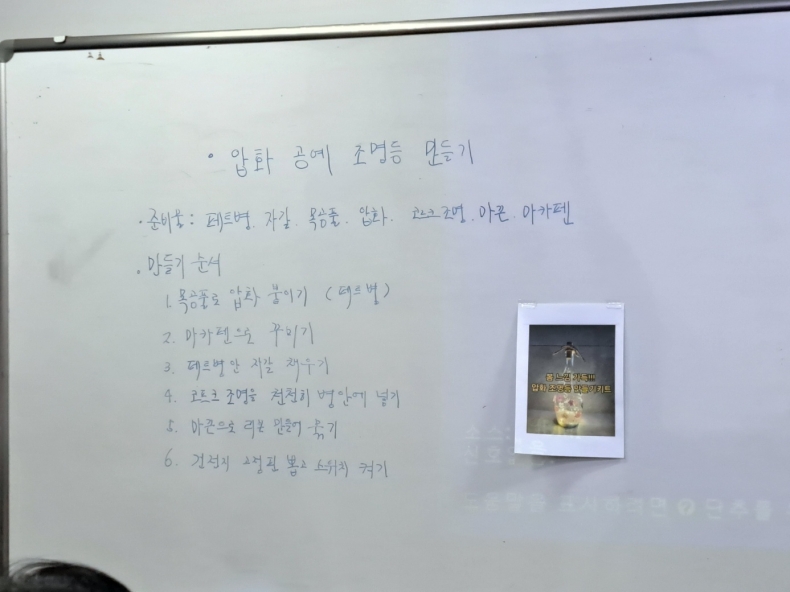 • 압화 공예 조명등 만들기
• 준비물 : 페트병. 자갈. 목공풀. 압화. 코르크 조명. 마끈. 마카펜
• 만들기 순서
1. 목공풀로 압화 붙이기 (페트병)
2. 마카펜으로 꾸미기
3. 페트병 안 자갈 채우기
4. 코르크 조명을 천천히 병안에 넣기
5. 마끈으로 리본 만들어 묶기
6. 건전지 고정핀 뽑고 스위치 켜기
봄 느낌 가득!!!
압화 조명등 만들기키트
도움말을 표시하려면 ? 단추를